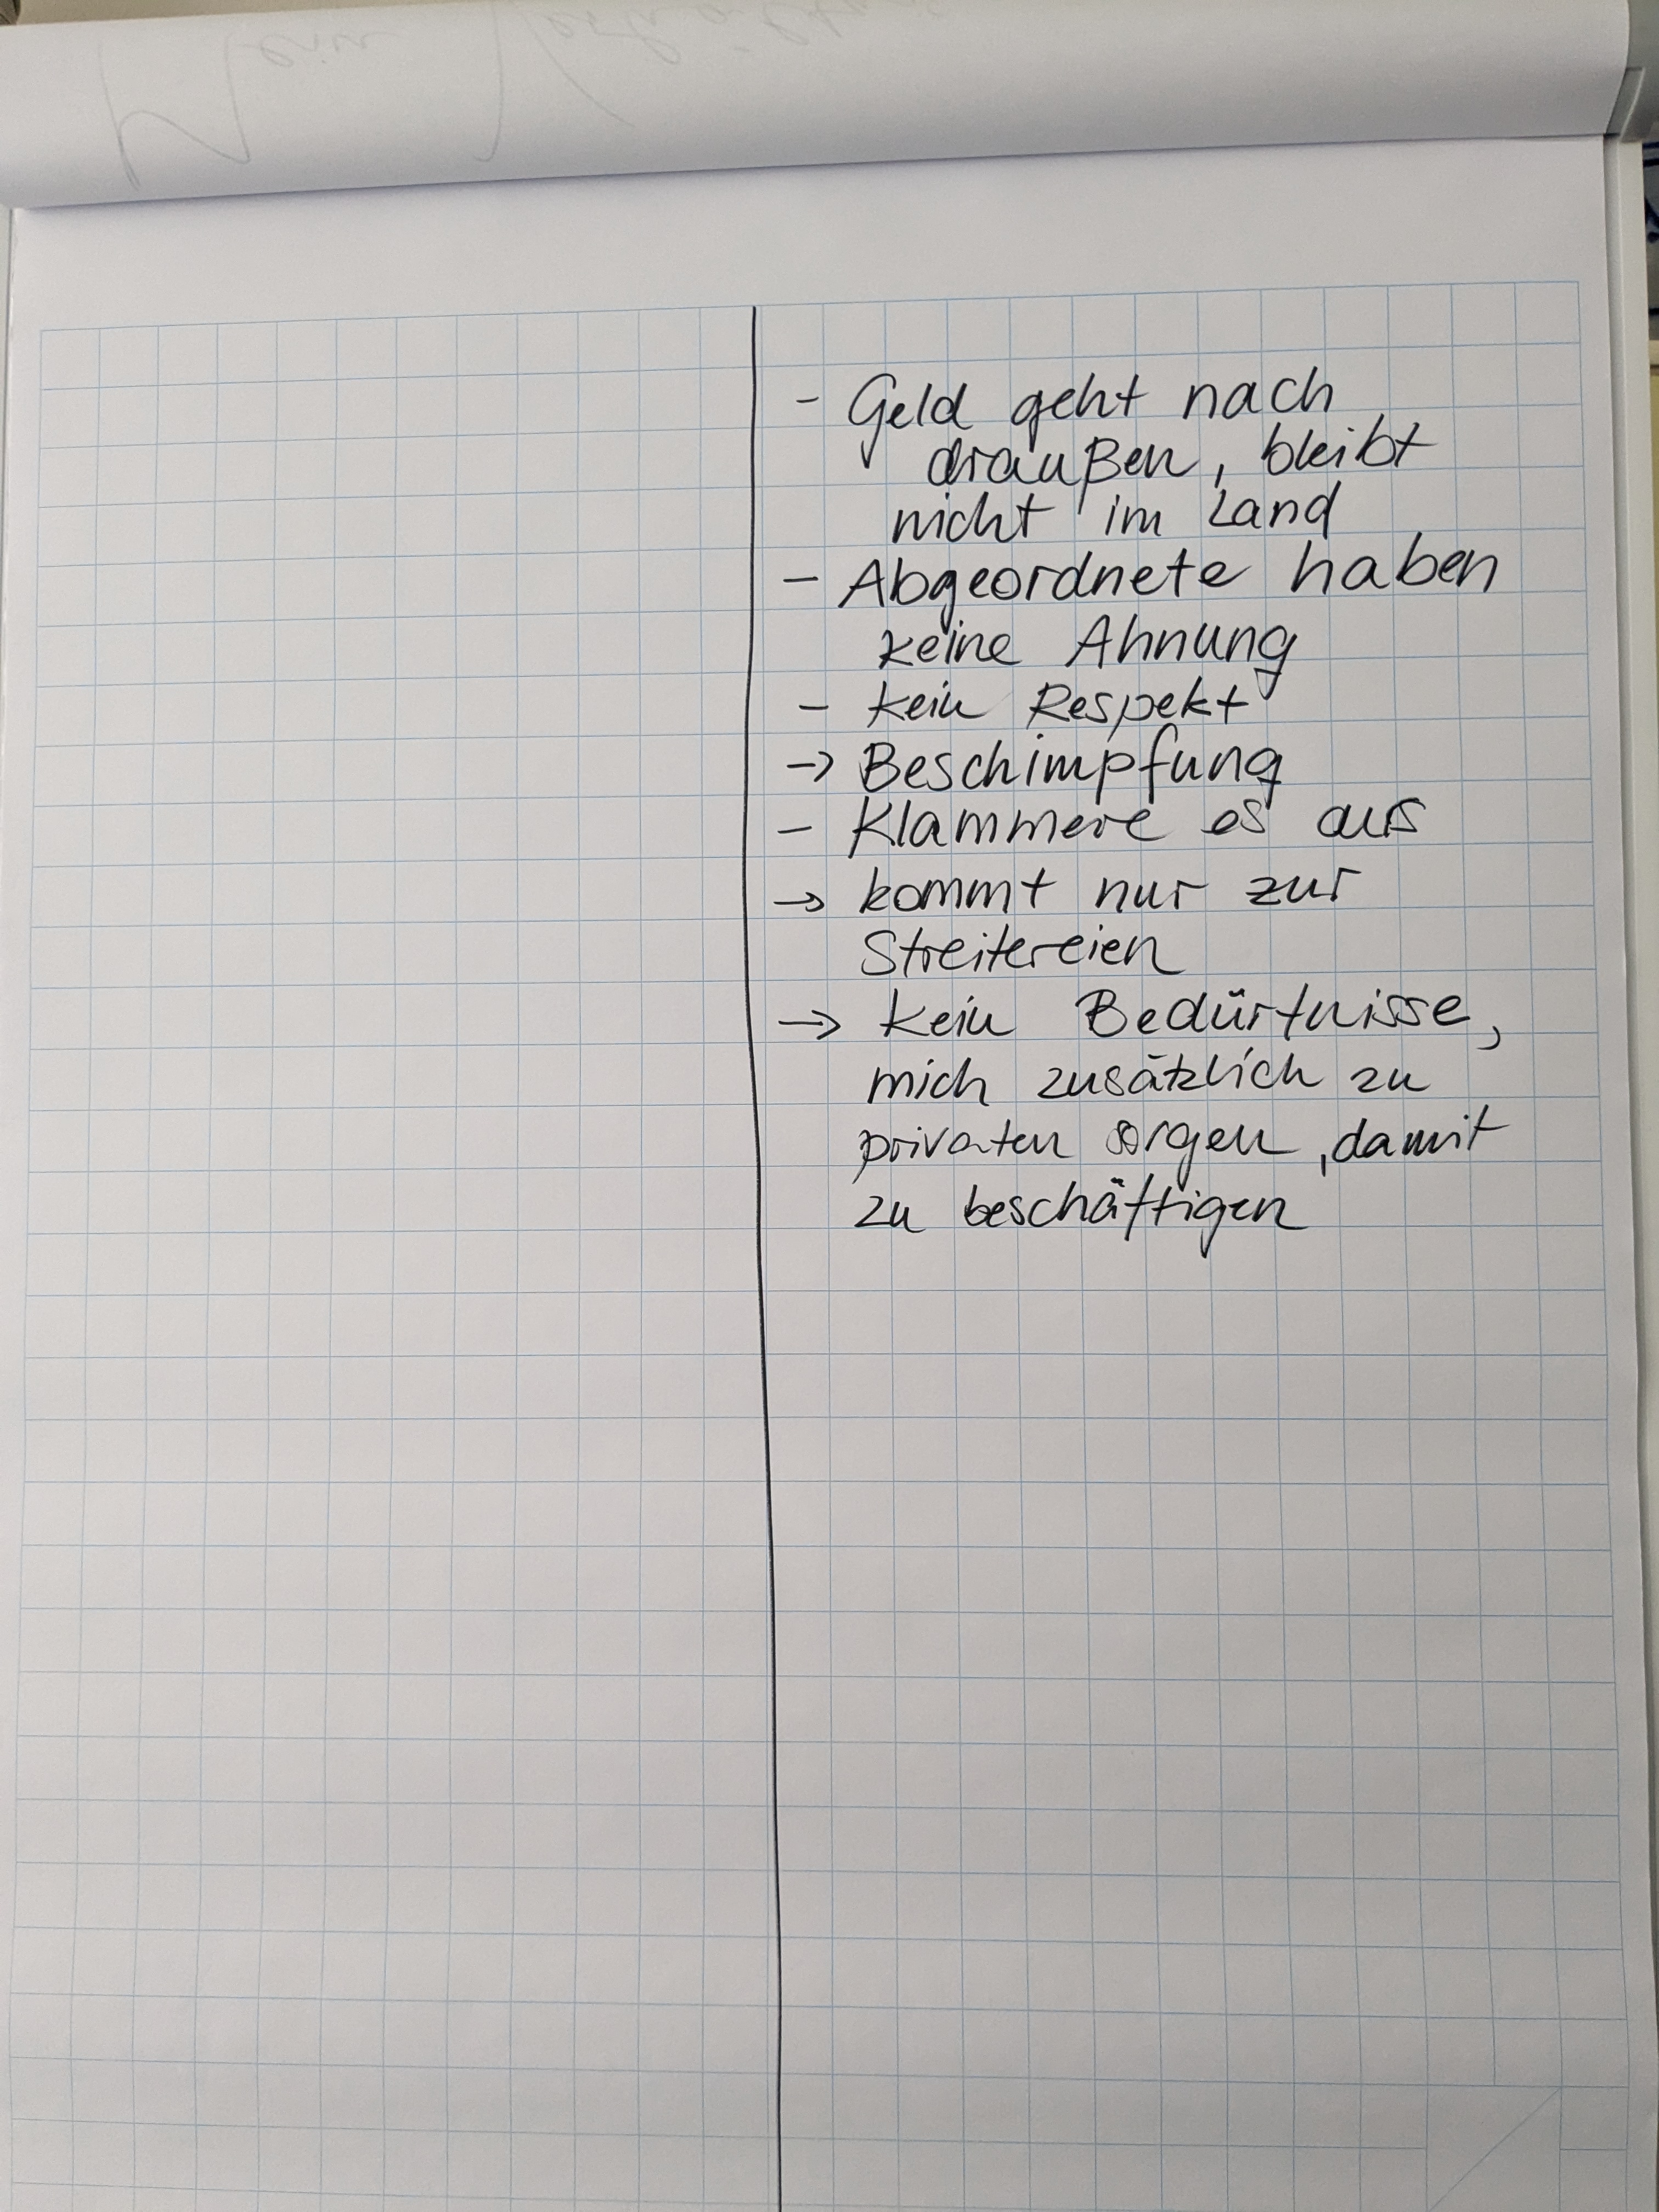 Mein Verhältnis
- Geld geht nach
draußen, bleibt
nicht im Land
- Abgeordnete haben
keine Ahnung
- kein Respekt
-> Beschimpfung
- Klammere es aus
-> kommt nur zur
Streitereien
-> kein Bedürfnisse,
mich zusätzlich zu
privaten sorgen, damit
zu beschäftigen